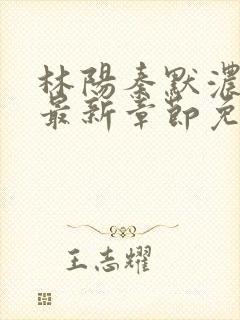 林陽秦默濃
最新章節免
王志耀